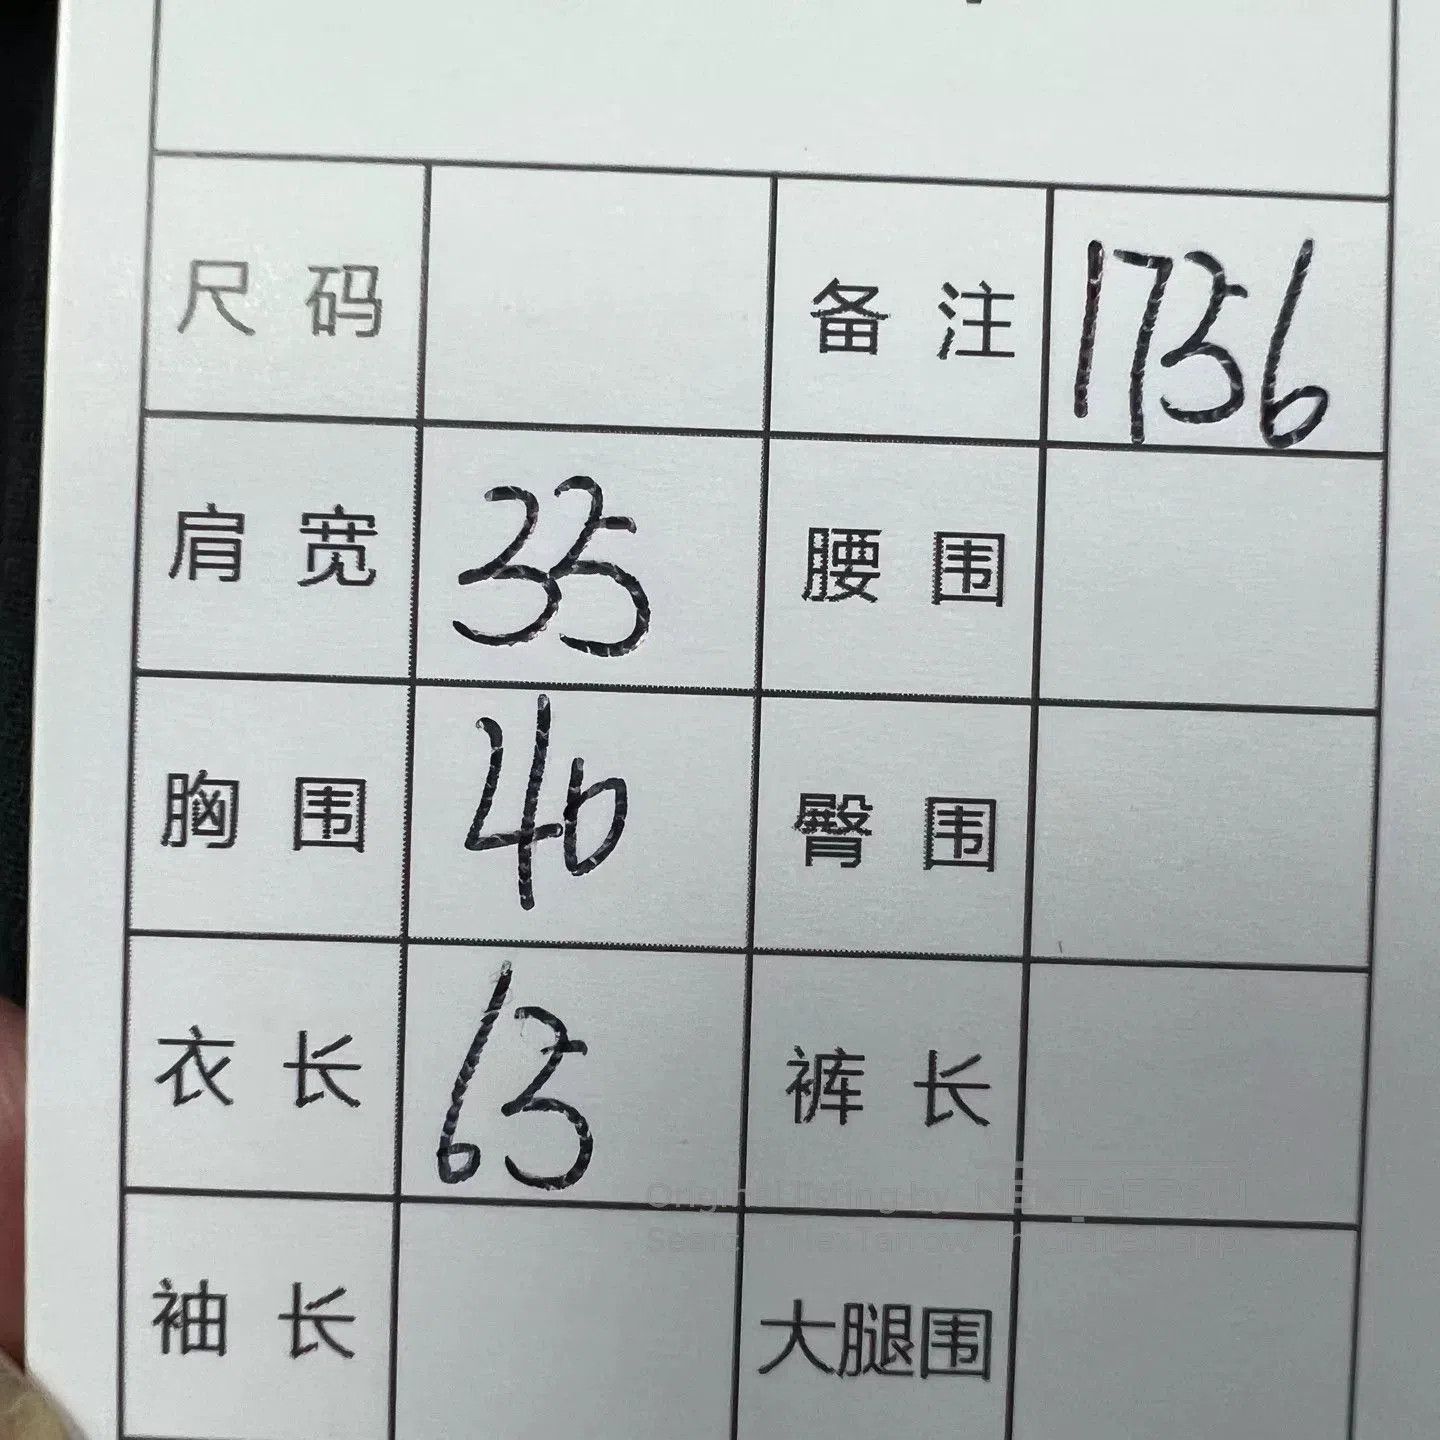 尺码 备注 1756
肩宽 35 腰围
胸围 40 臀围
衣长 65 裤长
Original listing by
袖长 大腿围